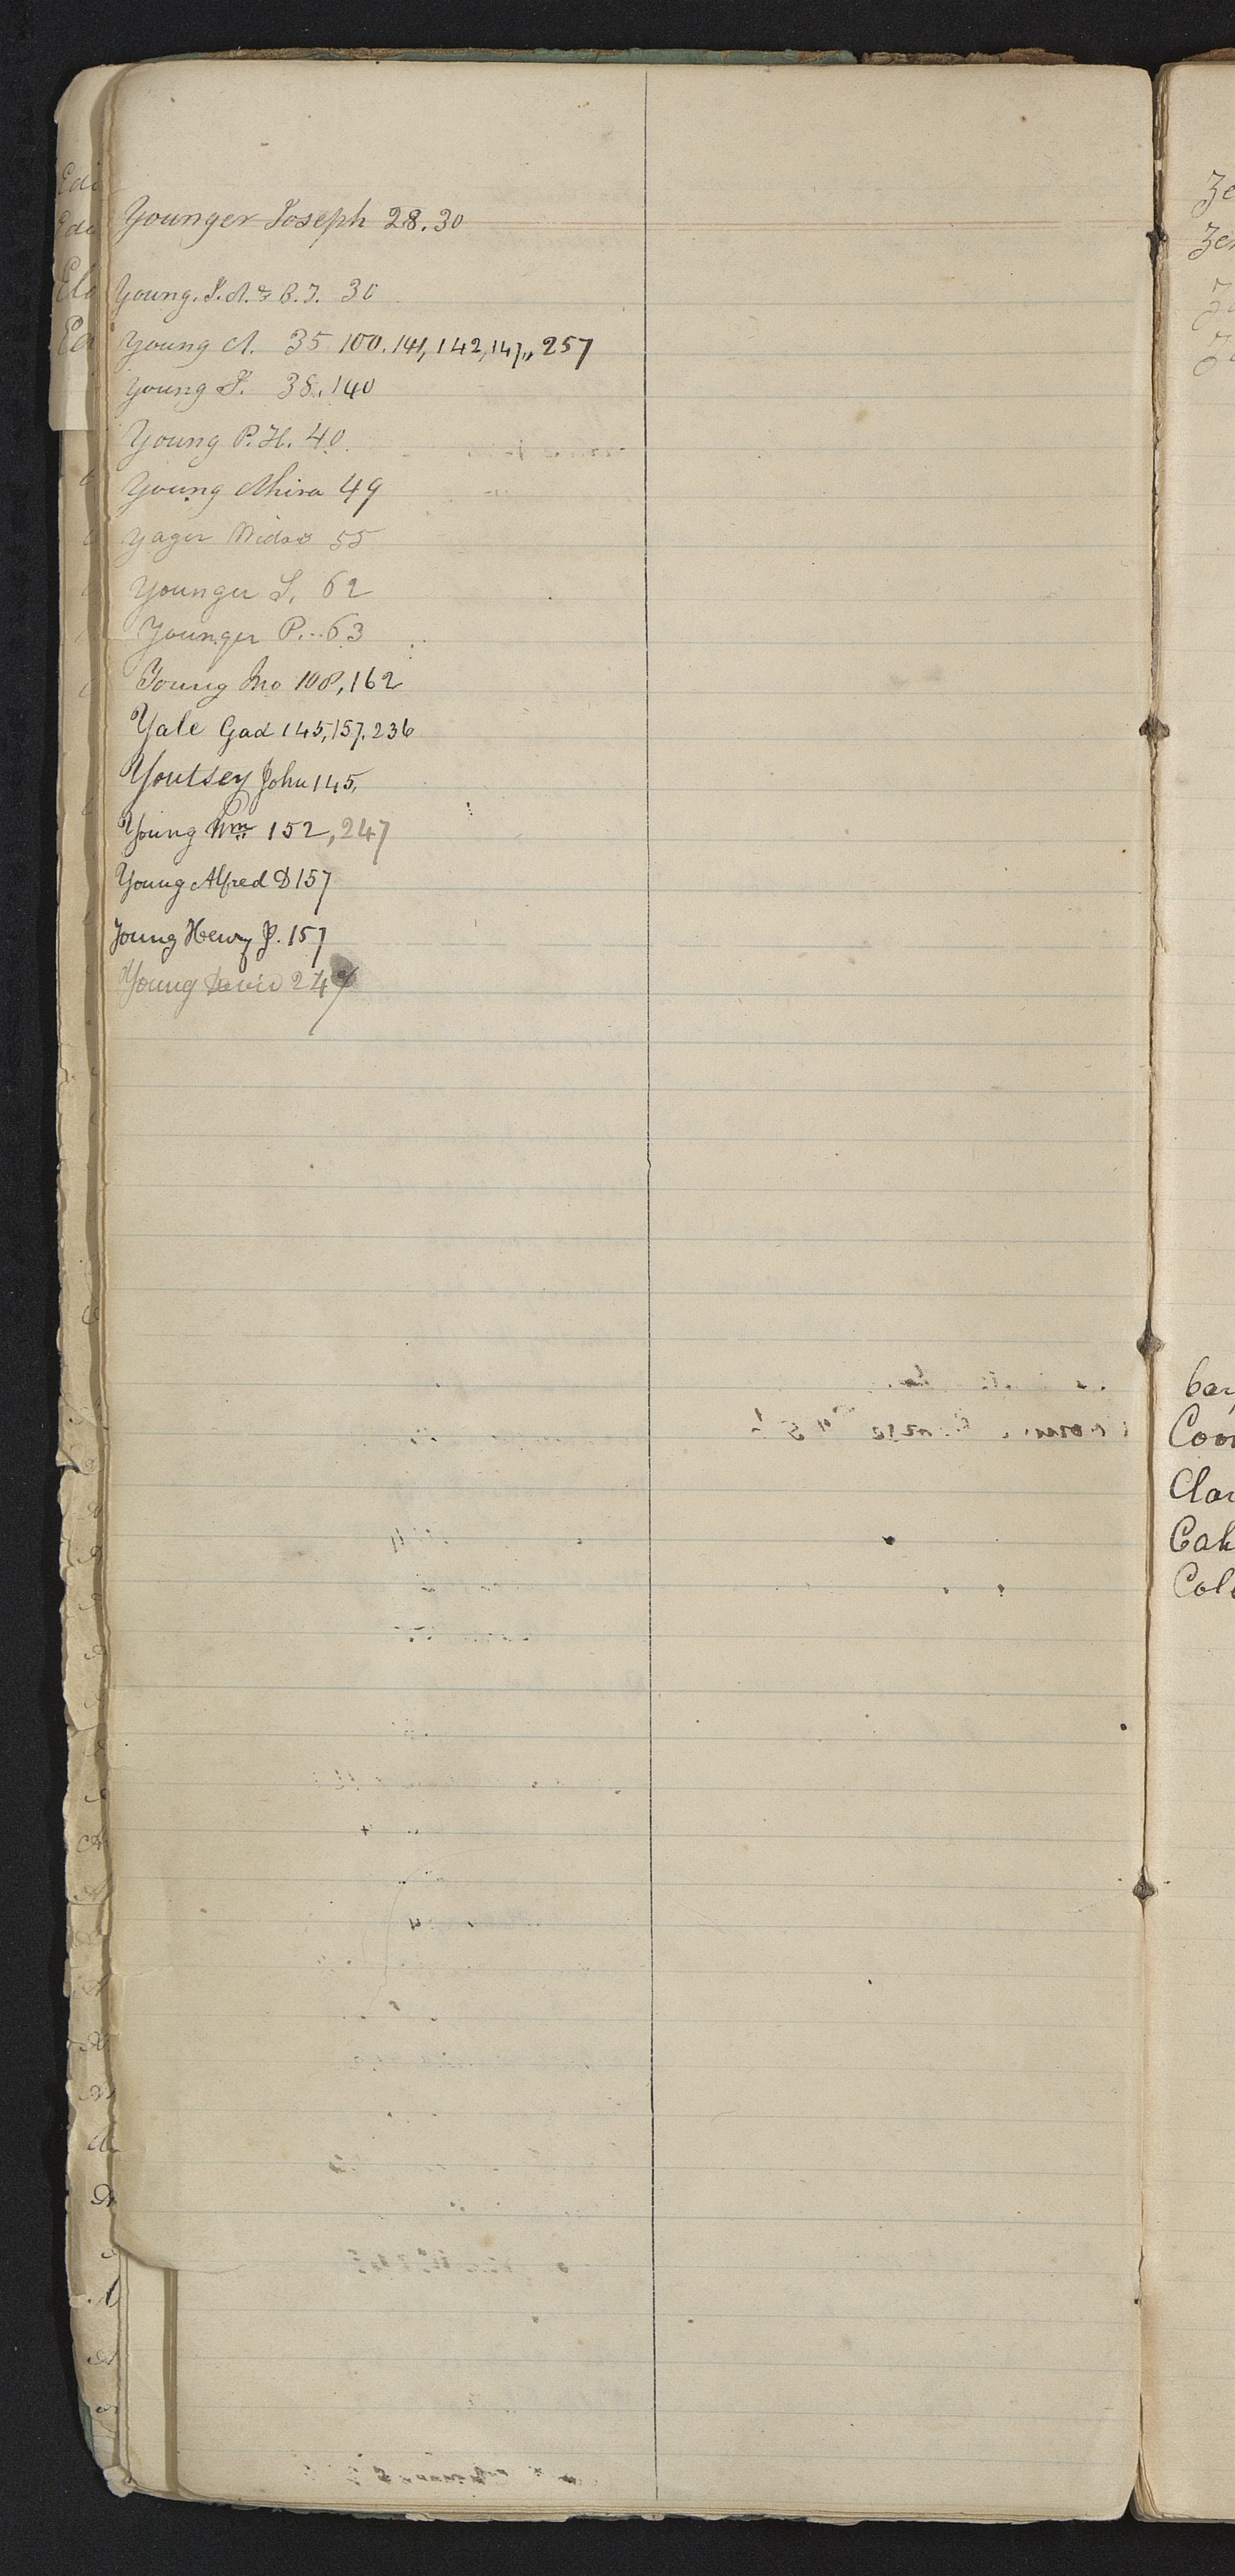 Younger Joseph 28.30
Young. J. A. & B. J. 30
Young A. 35 100. 141, 142, 147,, 257
Young J. 38. 140
Young P. H. 40
Young 49
Yager 55
Younger S. 62
Younger P. 63
Young Jno 108, 162
Yale Gad 145, 157, 236
Youtsey John 145,
Young Wm 152, 247
Young Alfred D 157
Young Henry J. 157
Young David 247